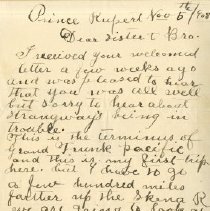 Prince Rupert Nov 5th/908
Dear Sister & Bro.
I received your welcomed
letter a few weeks ago
and was pleased to hear
that you was all well
but sorry to hear about
Strangways being in
trouble.
This is the terminus of
Grand Trunk Pacific
and this is my first trip
here. but I have to go
a few hundred miles
farther up the Skena R
we are going to look at